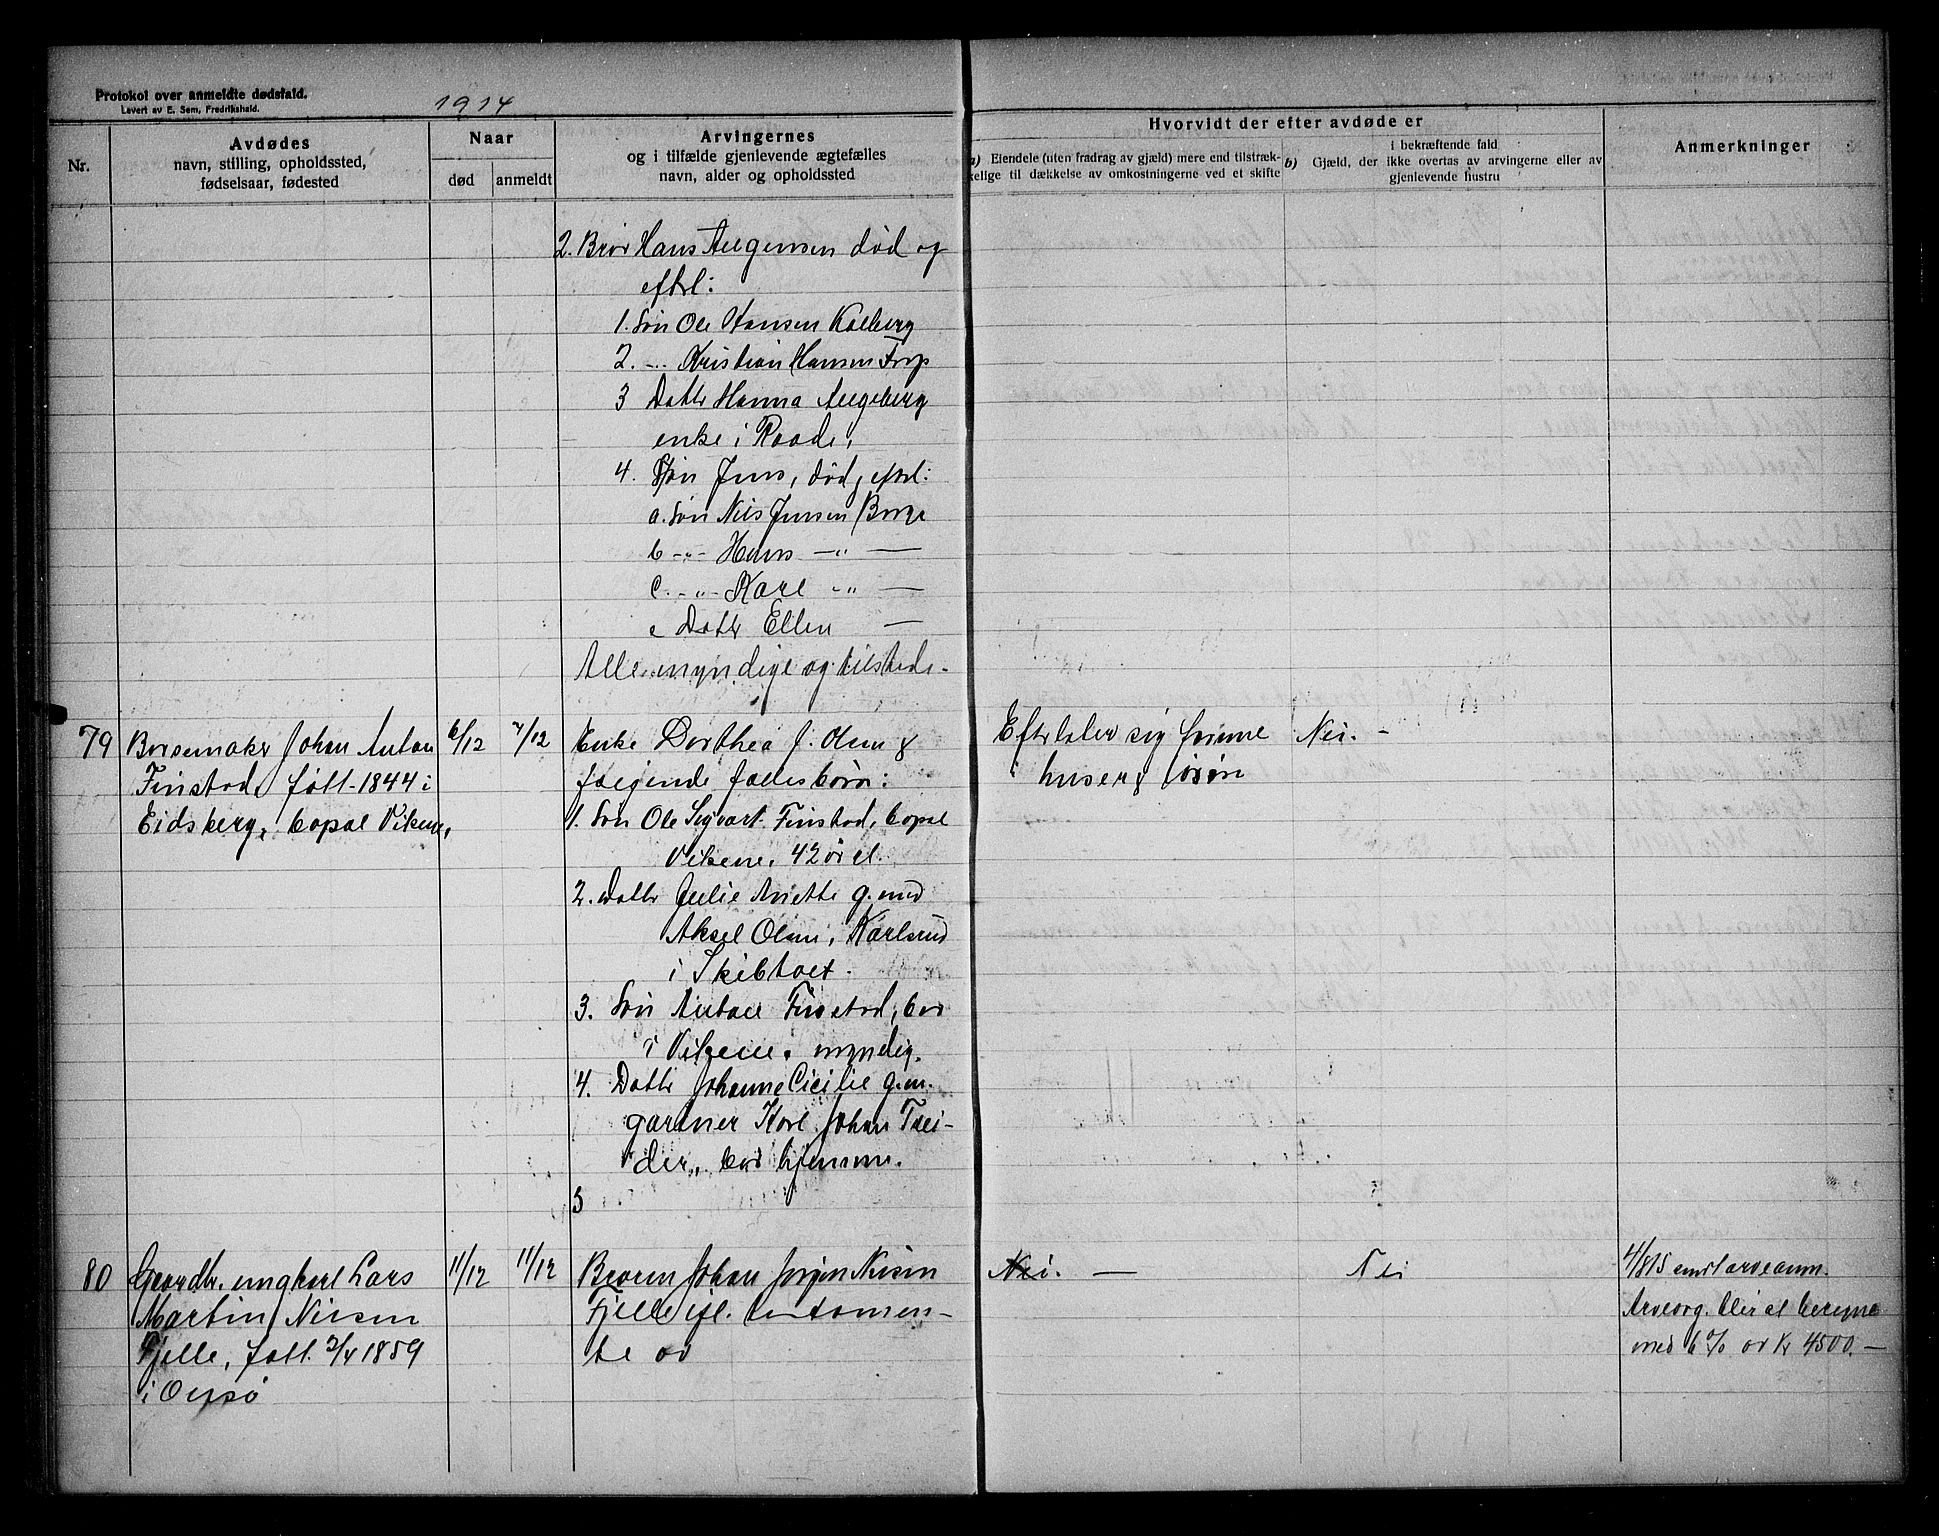 Protokol over anmeldte dødsfald.
Levert av E. Sem, Fredrikshald.
1914
Nr.
Avdødes
navn, stilling, opholdssted,
fødselsaar, fødested
Naar
død
anmeldt
Arvingernes
og i tilfælde gjenlevende ægtefælles
navn, alder og opholdssted
Hvorvidt der efter avdøde er
a) Eiendele (uten fradrag av gjæld) mere end tilstræk-
kelige til dækkelse av omkostningerne ved et skifte
b) Gjæld, der
i bekræftende fald
ikke overtas av arvingerne eller av
gjenlevende hustru
Anmerkninger
2. Bror Hans Augensen død og
efterl:
1. Søn Ole Hansen Kalberg
2. -"- Kristian Hansen Torp
3 Dattr Hanna Augeberg
enke i Raade,
4. Søn Jens, død, efterl:
a. Søn Nils Jensen, Borge
b -"- Hans -"- —
c. -"- Karl -"- —
e Dattr Ellen —
Alle myndige og tilstede.
79
Børsemaker Johan Anton
Finstad, født 1844 i
Eidsberg, bopæl Vikene,
6/12
7/12
Enke Dorthea J. Olsen &
følgende fælles børn:
1. Søn Ole Sigvart Finstad, bopæl
Vikene, 42 år gl.
2. Dattr Julie Anette g. med
Aksel Olsen, Karlsrud
i Skibtvet.
3. Søn Anton Finstad, bor
i Vikene, myndig.
4. Dattr Johanne Cicilie g.m.
gartner Karl Johan
bor hjemme.
5
Efterlater sig
hus & løsøre
Nei. -
80
Gaardbr. ungkarl Lars
Martin Nilsen
Fjelle, født 2/4 1859
i Onsø
11/12
11/12
Broren Johan Jørgen Nilsen
Fjelle ifl. testamen-
te av
Nei. —
Nei
4/8 15
Arveavg. blir at beregne
med 6 % av Kr 4500. —